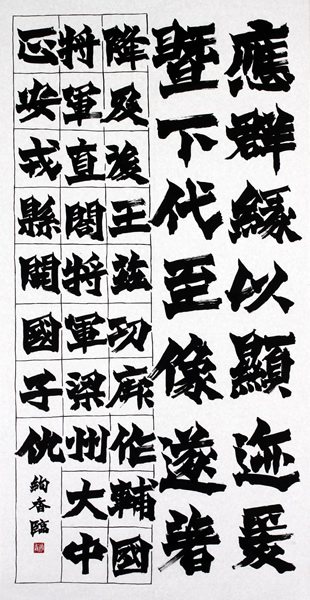 應群緣以顯迹爰
暨下代至像遂著
降及後王茲功厥作輔國
將軍直閤將軍梁州大中
正安戎縣開國子仇
絢香臨